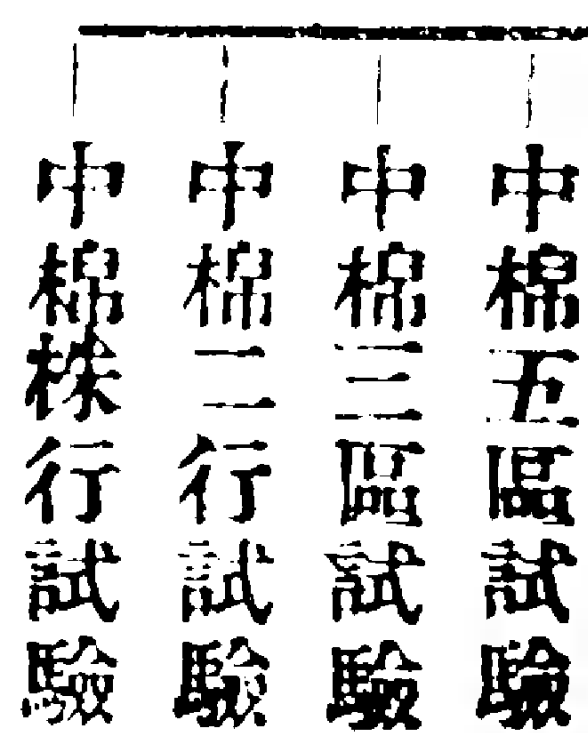 中棉五區試驗
中棉三區試驗
中棉二行試驗
中棉株行試驗